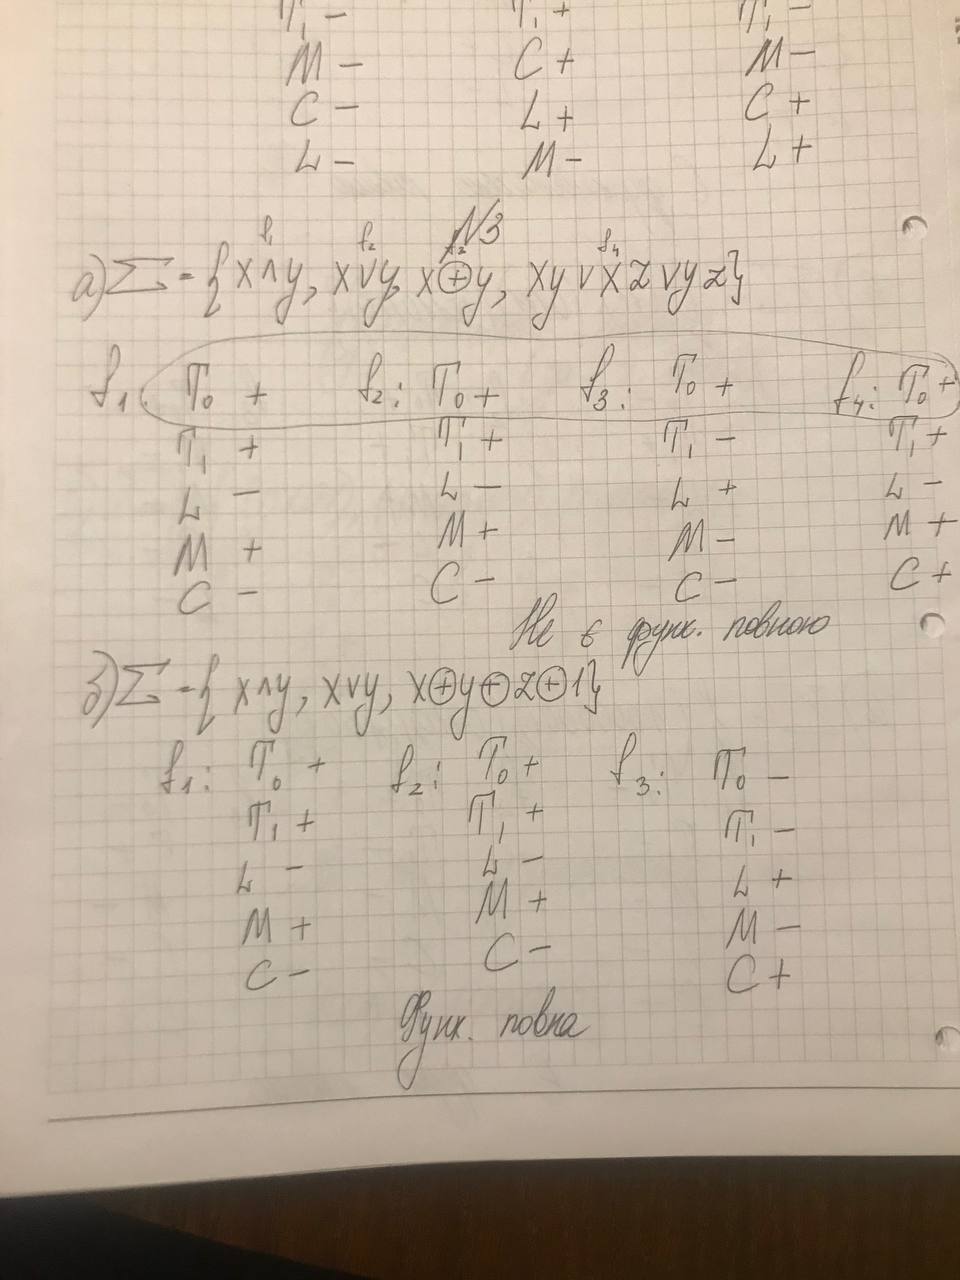 T₁ − T₁ + T₁ −
M − C + M −
C − L + C +
L − M − L +
№3
f₁ f₂ f₃ f₄
а) Σ = { x∧y, x∨y, x⊕y, xy ∨ xz ∨ yz}
f₁: T₀ + f₂: T₀ + f₃: T₀ + f₄: T₀ +
T₁ + T₁ + T₁ − T₁ +
L − L − L + L −
M + M + M − M +
C − C − C − C +
Не є функ. повною
б) Σ = { x∧y, x∨y, x⊕y⊕z⊕1}
f₁: T₀ + f₂: T₀ + f₃: T₀ −
T₁ + T₁ + T₁ −
L − L − L +
M + M + M −
C − C − C +
Функ. повна